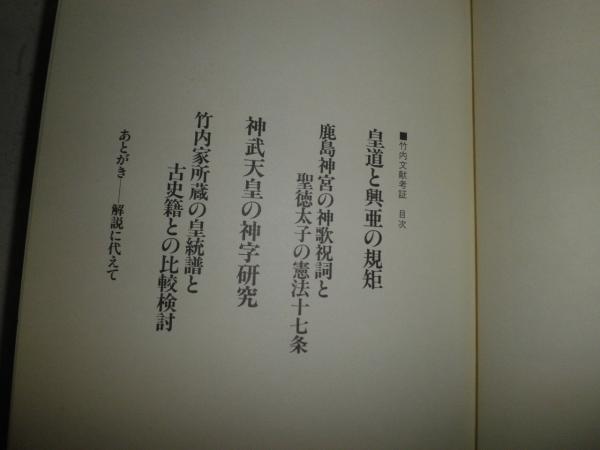 ■竹内文献考証　目次
皇道と興亜の規矩
鹿島神宮の神歌祝詞と
聖徳太子の憲法十七条
神武天皇の神字研究
竹内家所蔵の皇統譜と
古史籍との比較検討
あとがき——解説に代えて